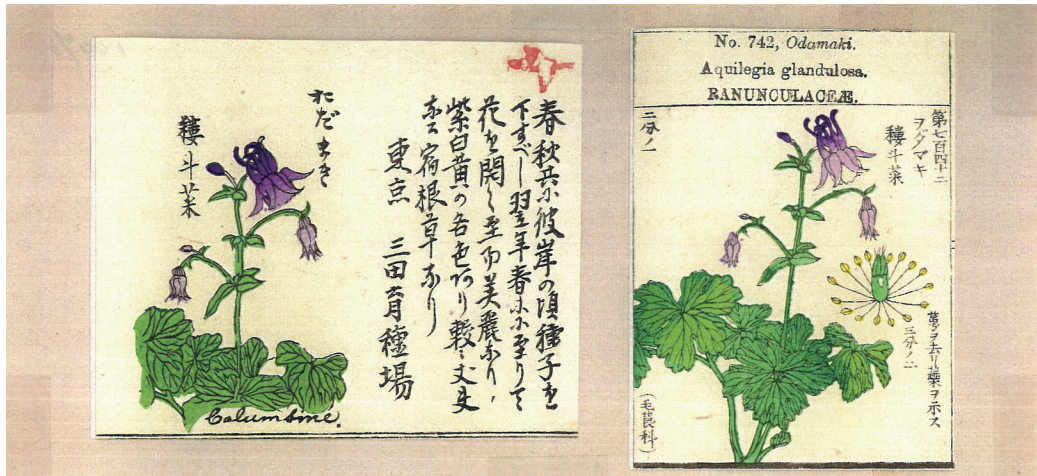 春秋共に彼岸の頃種子を
下すべし翌年春に至りて
花を開く至而美麗なり、
紫白黄の各色あり
宿根草なり
東京 三田育種場
をだまき
耬斗菜
Columbine.
No. 742, Odamaki.
Aquilegia glandulosa.
RANUNCULACEÆ.
第七百四十二
ヲダマキ
耬斗菜
二分ノ一
萼ヲ去リ蘂ヲ示ス
三分ノ二
(毛莨科)